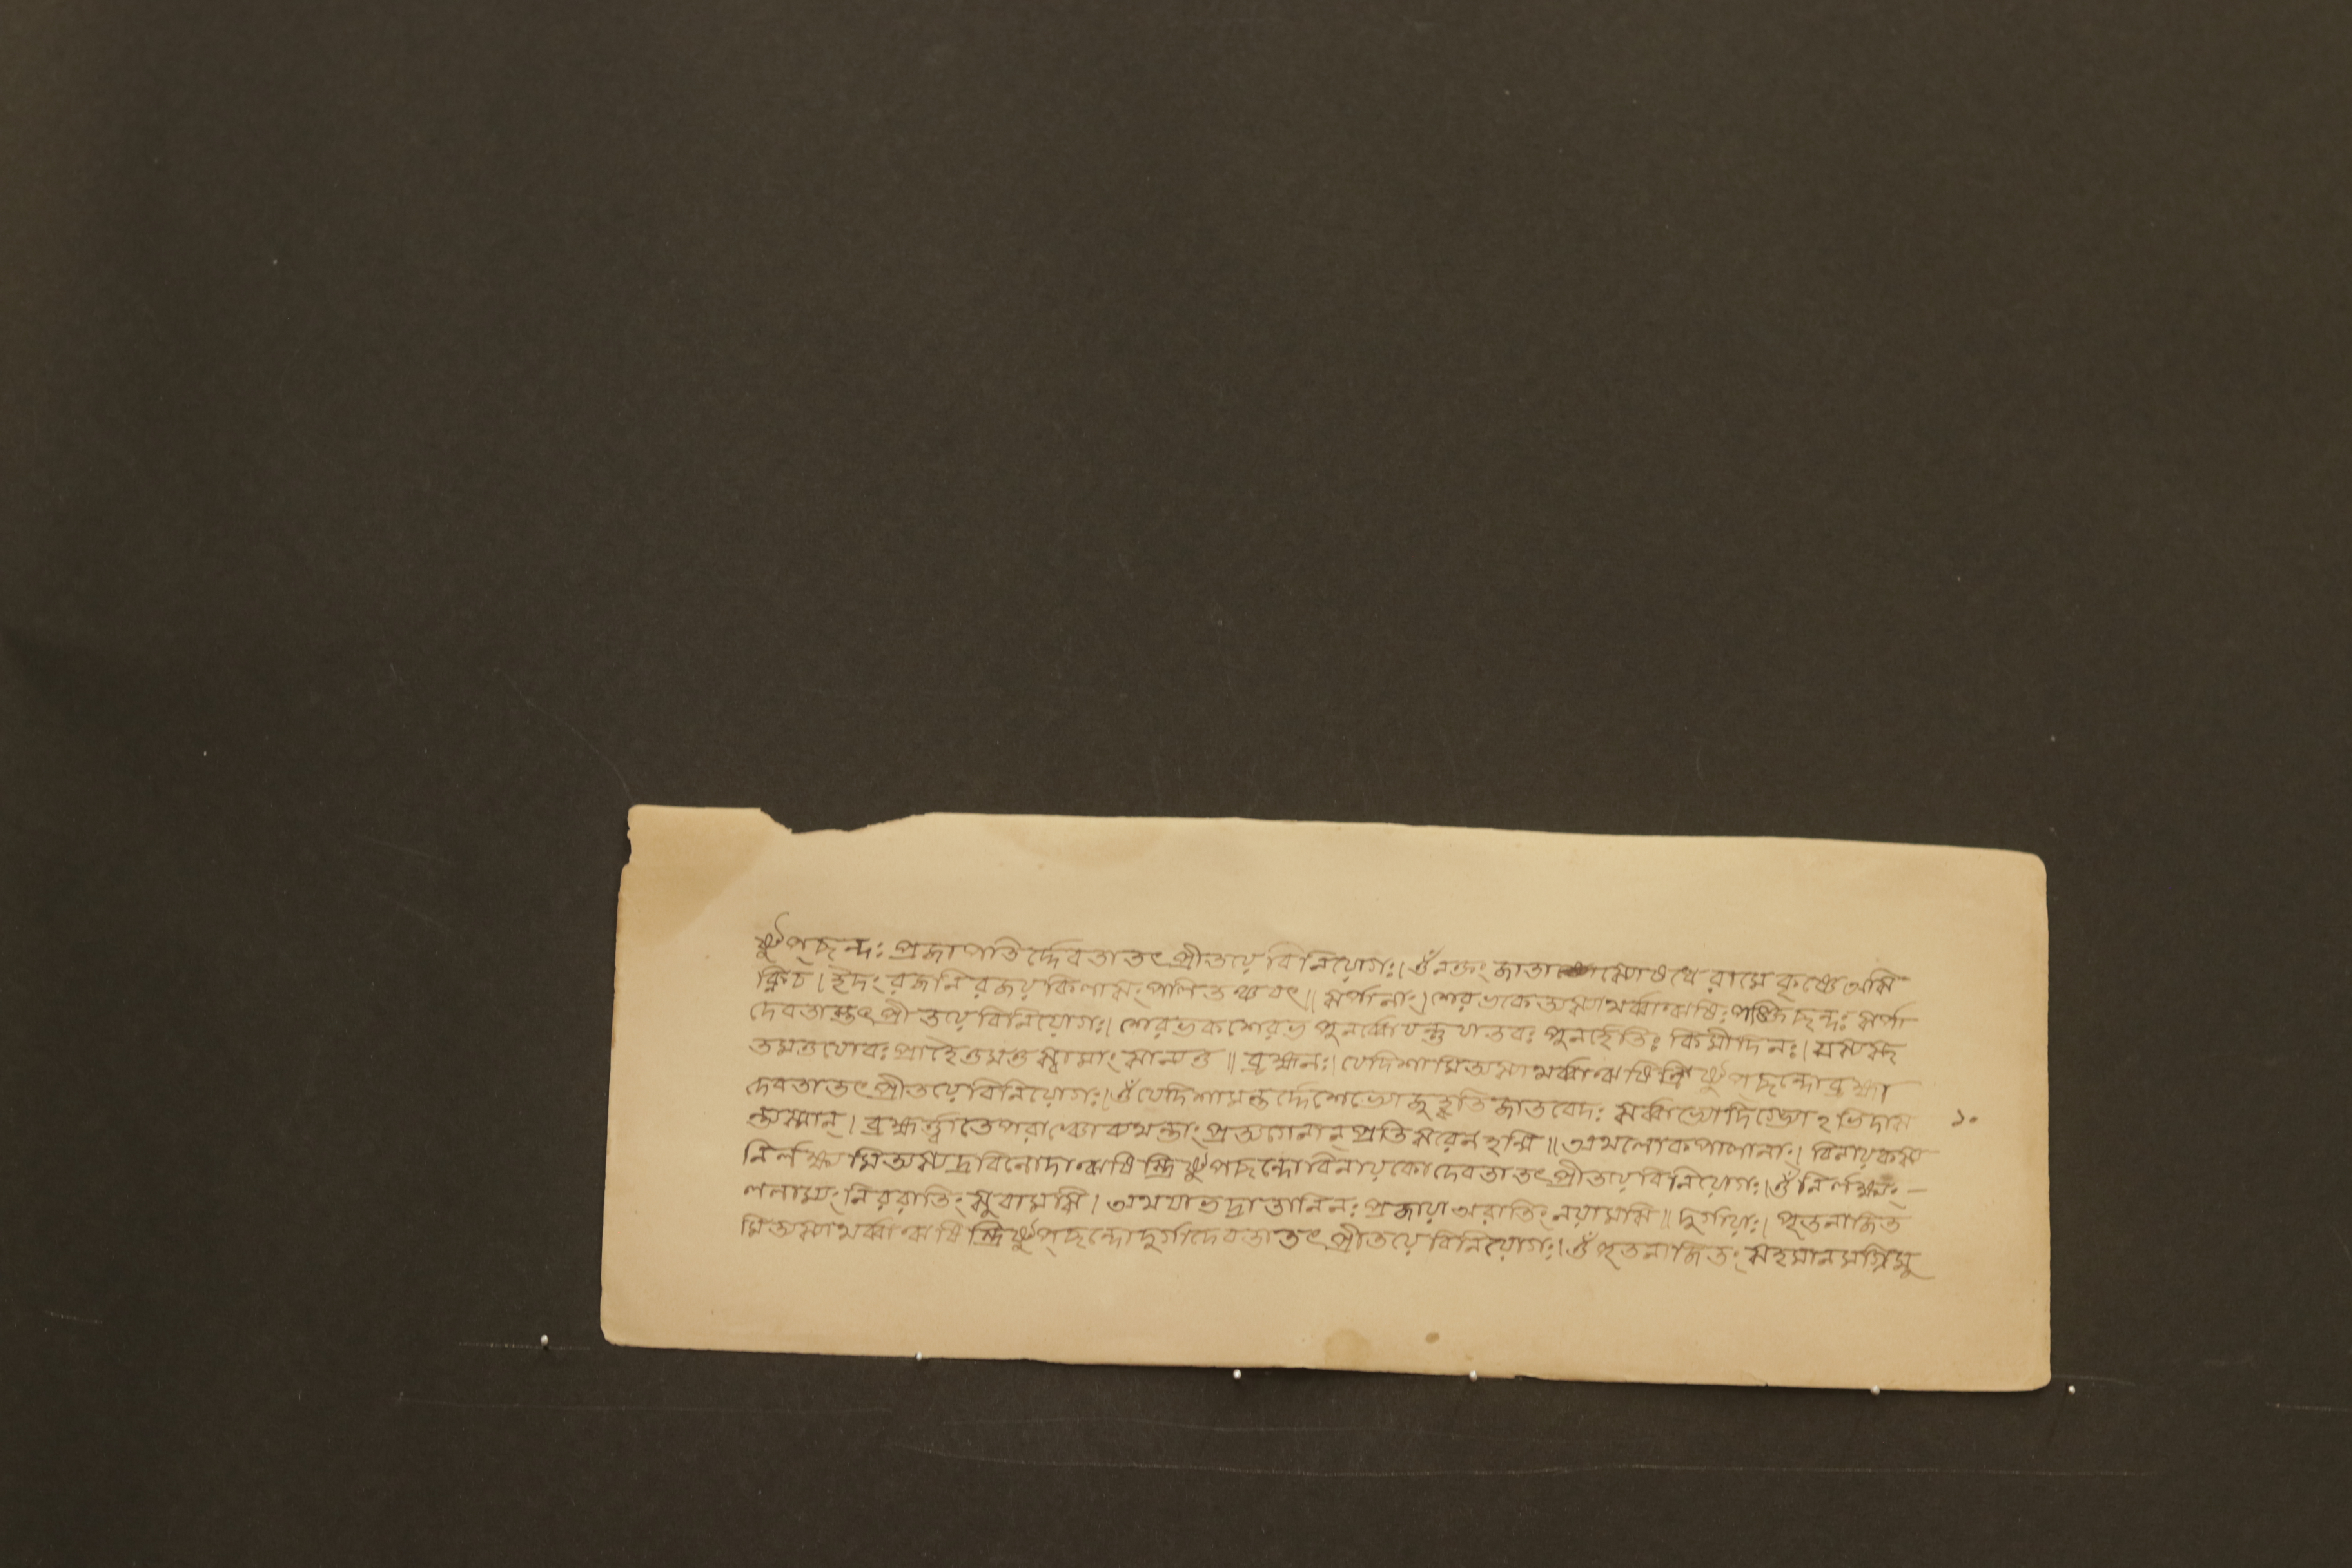 ষ্টুপ্ছন্দঃ প্রজাপতির্দ্দেবতাতৎপ্রীতয়ে বিনিয়োগঃ। ওঁ নক্তং জাতা স্যোষধে রামে কৃষ্ণে অসি
ক্নিচ। ইদং রজনি রজয় কিলাসং পলিতঞ্চ যৎ॥ সর্পানাং। শেরভকেত্যস্যাথর্ব্বাঋষিঃ পঙ্ক্তিচ্ছন্দঃ সর্পা
দেবতাস্তৎপ্রীতয়ে বিনিয়োগঃ। শেরভক শেরভ পুনর্ব্বো যন্তু যাতবঃ পুনর্হেতিঃ কিমীদিনঃ। যস্যস্থ
তমত্তযোবঃ প্রাহৈতমত্ত স্বামাং সান্যত্ত॥ ব্রহ্মানঃ। যেদিশামিত্যস্যাথর্ব্বাঋষিস্ত্রিষ্টুপ্ছন্দোব্রহ্মা
দেবতাতৎপ্রীতয়ে বিনিয়োগঃ। ওঁ যেদিশামন্তর্দ্দেশেভ্যোজুহ্বতি জাতবেদঃ সর্ব্বাভ্যোদিগ্ভ্যোঽভিদাস
ন্ত্যস্মান্। ব্রহ্মর্ত্ত্বাতেপরাঞ্চোব্যথন্তাং প্রত্যগেনান্ প্রতিসরেন হন্মি॥ অথলোকপালানাং। বিনায়কস্য ১০
নির্লক্ষ্ম্যমিত্যস্যদ্রবিনোদাঋষিস্ত্রিষ্টুপছন্দোবিনায়কোদেবতাতৎপ্রীতয়ে বিনিয়োগঃ। ওঁ নির্লক্ষ্ম্যং—
ললাম্যং নিররাতিং সুবামসি। অথযাভদ্রাতানিনঃ প্রজায়া অরাতিং নয়ামসি॥ দুর্গায়াঃ। পৃতনাজিত
মিত্যস্যাথর্ব্বাঋষিস্ত্রিষ্টুপ্ছন্দোদুর্গাদেবতাতৎপ্রীতয়ে বিনিয়োগঃ। ওঁ পৃতনাজিতং সহমানমগ্নিমু